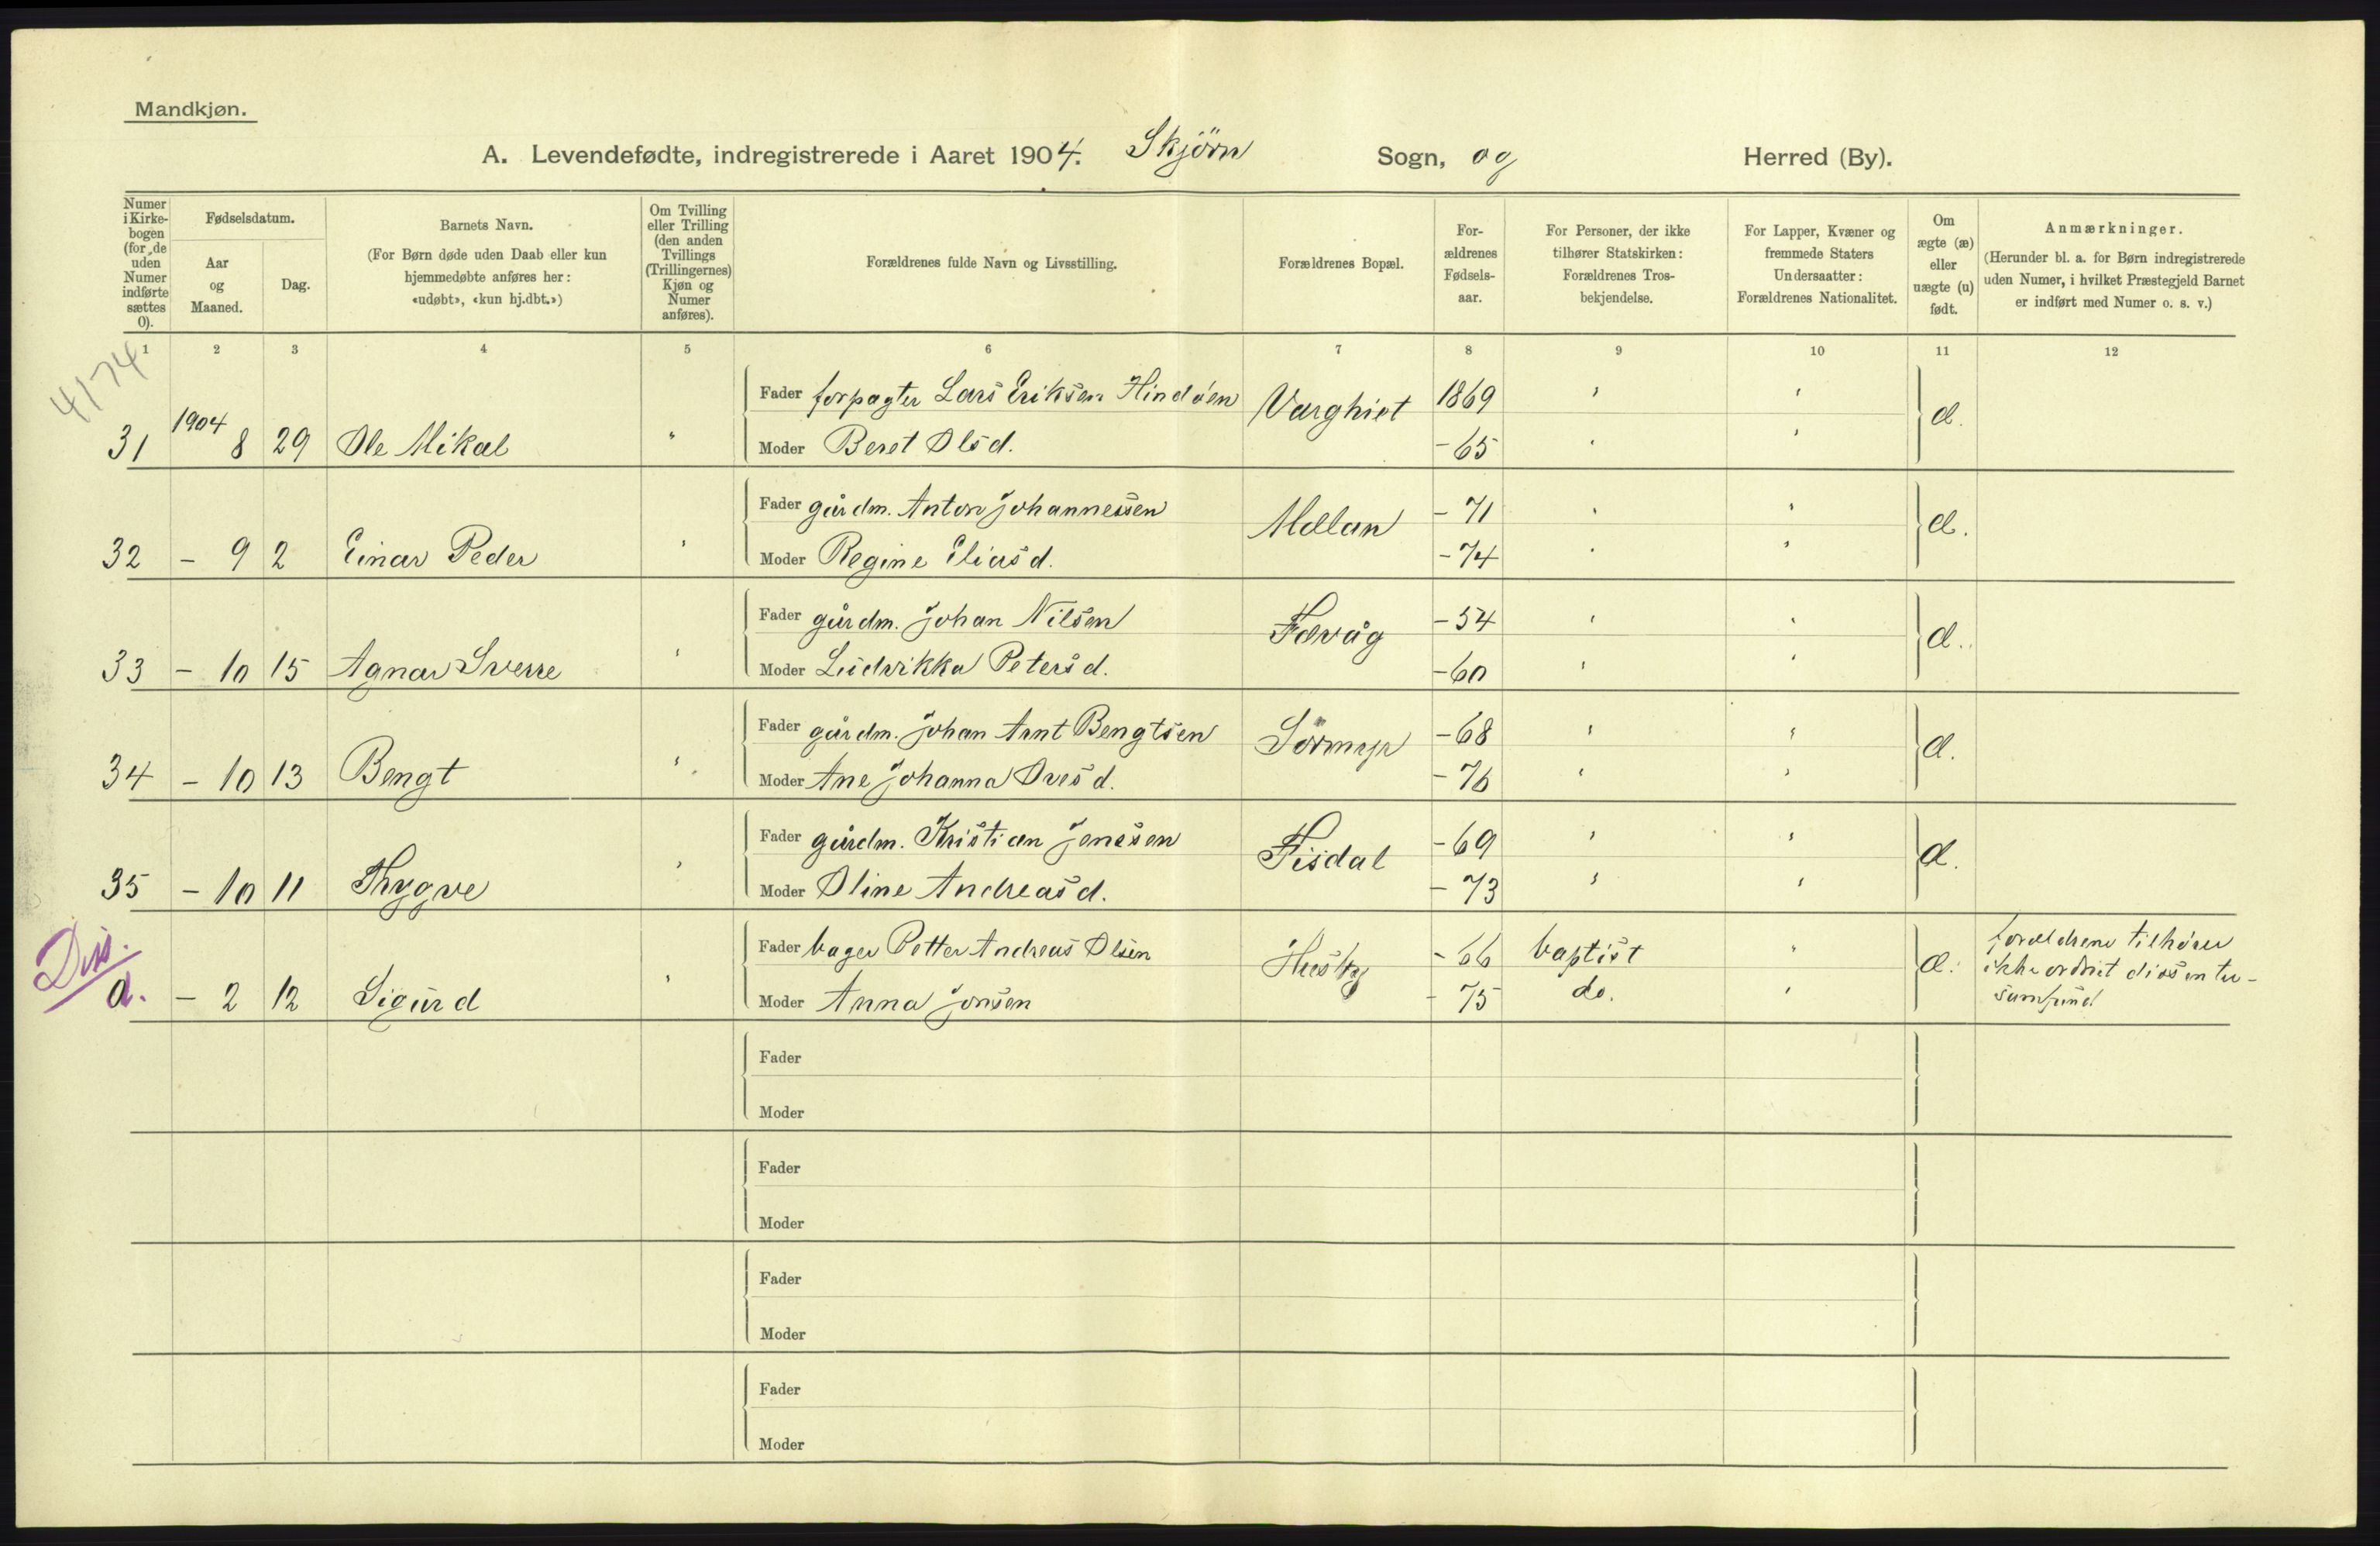 Mandkjøn.
A. Levendefødte, indregistrerede i Aaret 1904. Skjörn Sogn, og Herred (By).
Numer i Kirkebogen (for de uden Numer indførte sættes 0).
Fødselsdatum.
Aar og Maaned.
Dag.
Barnets Navn.
(For Børn døde uden Daab eller kun hjemmedøbte anføres her: «udøbt», «kun hj.dbt.»)
Om Tvilling eller Trilling (den anden Tvillings (Trillingernes) Kjøn og Numer anføres).
Forældrenes fulde Navn og Livsstilling.
Forældrenes Bopæl.
Forældrenes Fødselsaar.
For Personer, der ikke tilhører Statskirken: Forældrenes Trosbekjendelse.
For Lapper, Kvæner og fremmede Staters Undersaatter: Forældrenes Nationalitet.
Om ægte (æ) eller uægte (u) født.
Anmærkninger.
(Herunder bl. a. for Børn indregistrerede uden Numer, i hvilket Præstegjeld Barnet er indført med Numer o. s. v.)
1 2 3 4 5 6 7 8 9 10 11 12
4174
Fader forpagter Lars Eriksen Hindöen Varghiet 1869 æ.
31 1904 8 29 Ole Mikal " Moder Beret Olsd. -65
Fader gårdm. Anton Johannessen Mælan -71 æ.
32 - 9 2 Einar Peder " Moder Regine Eliasd. -74
Fader gårdm. Johan Nilsen Fævåg -54 æ.
33 - 10 15 Agnar Sverre " Moder Ludvikka Petersd. -60
Fader gårdm. Johan Arnt Bengtsen Sörmyr -68 æ.
34 - 10 13 Bengt " Moder Ane Johanna Ovesd. -76
Fader gårdm. Kristian Jenssen Fisdal -69 æ.
35 - 10 11 Thrygve " Moder Oline Andreasd. -73
Diss.
Fader bager Petter Andreas Olsen Husby -66 baptist " æ. forældrene tilhörer
ikke ordnet dissenter-
samfund
d. - 2 12 Sigurd " Moder Anna Jonsen -75 do. "
Fader
Moder
Fader
Moder
Fader
Moder
Fader
Moder